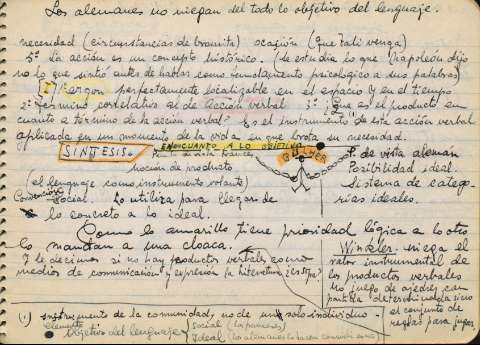 Los alemanes no niegan del todo lo objetivo del lenguaje.
necesidad (circunstancias de tramita) ocasión (que Tati venga)
5º La acción es un concepto histórico. (se estudia lo que Napoleón dijo
no lo que sintió antes de hablar como inmolamiento psicologico a sus palabras)
I perfectamente localizable en el espacio y en el tiempo
2º Término correlativo al de Acción verbal 1º ¿Que es el producto en
cuanto a término de la acción verbal? Es el instrumento de esta acción verbal
aplicada en un momento de la vida en que brota su necesidad.
SINTESIS. EN CUANTO A LO OBJETIVO
Punto de vista francés
noción de producto
(el lenguaje como instrumento
Social. Lo utiliza para llegar de
lo concreto a lo ideal.
P. de vista alemán
Posibilidad ideal.
Sistema de catego-
rias ideales.
Como lo amarillo tiene prioridad lógica a lo otro
lo mandan a una cloaca.
Y le decimos si no hay productos verbales como
medios de comunicación y expresión la literatura
Winkler niega el
valor instrumental de
los productos verbales
no juego de ajedrez con
partida determinada sino
el conjunto de
reglas para jugar
(1) instrumento de la comunidad, no de un solo individuo.
Elemento Objetivo del lenguaje Social (los franceses)
Ideal (los alemanes